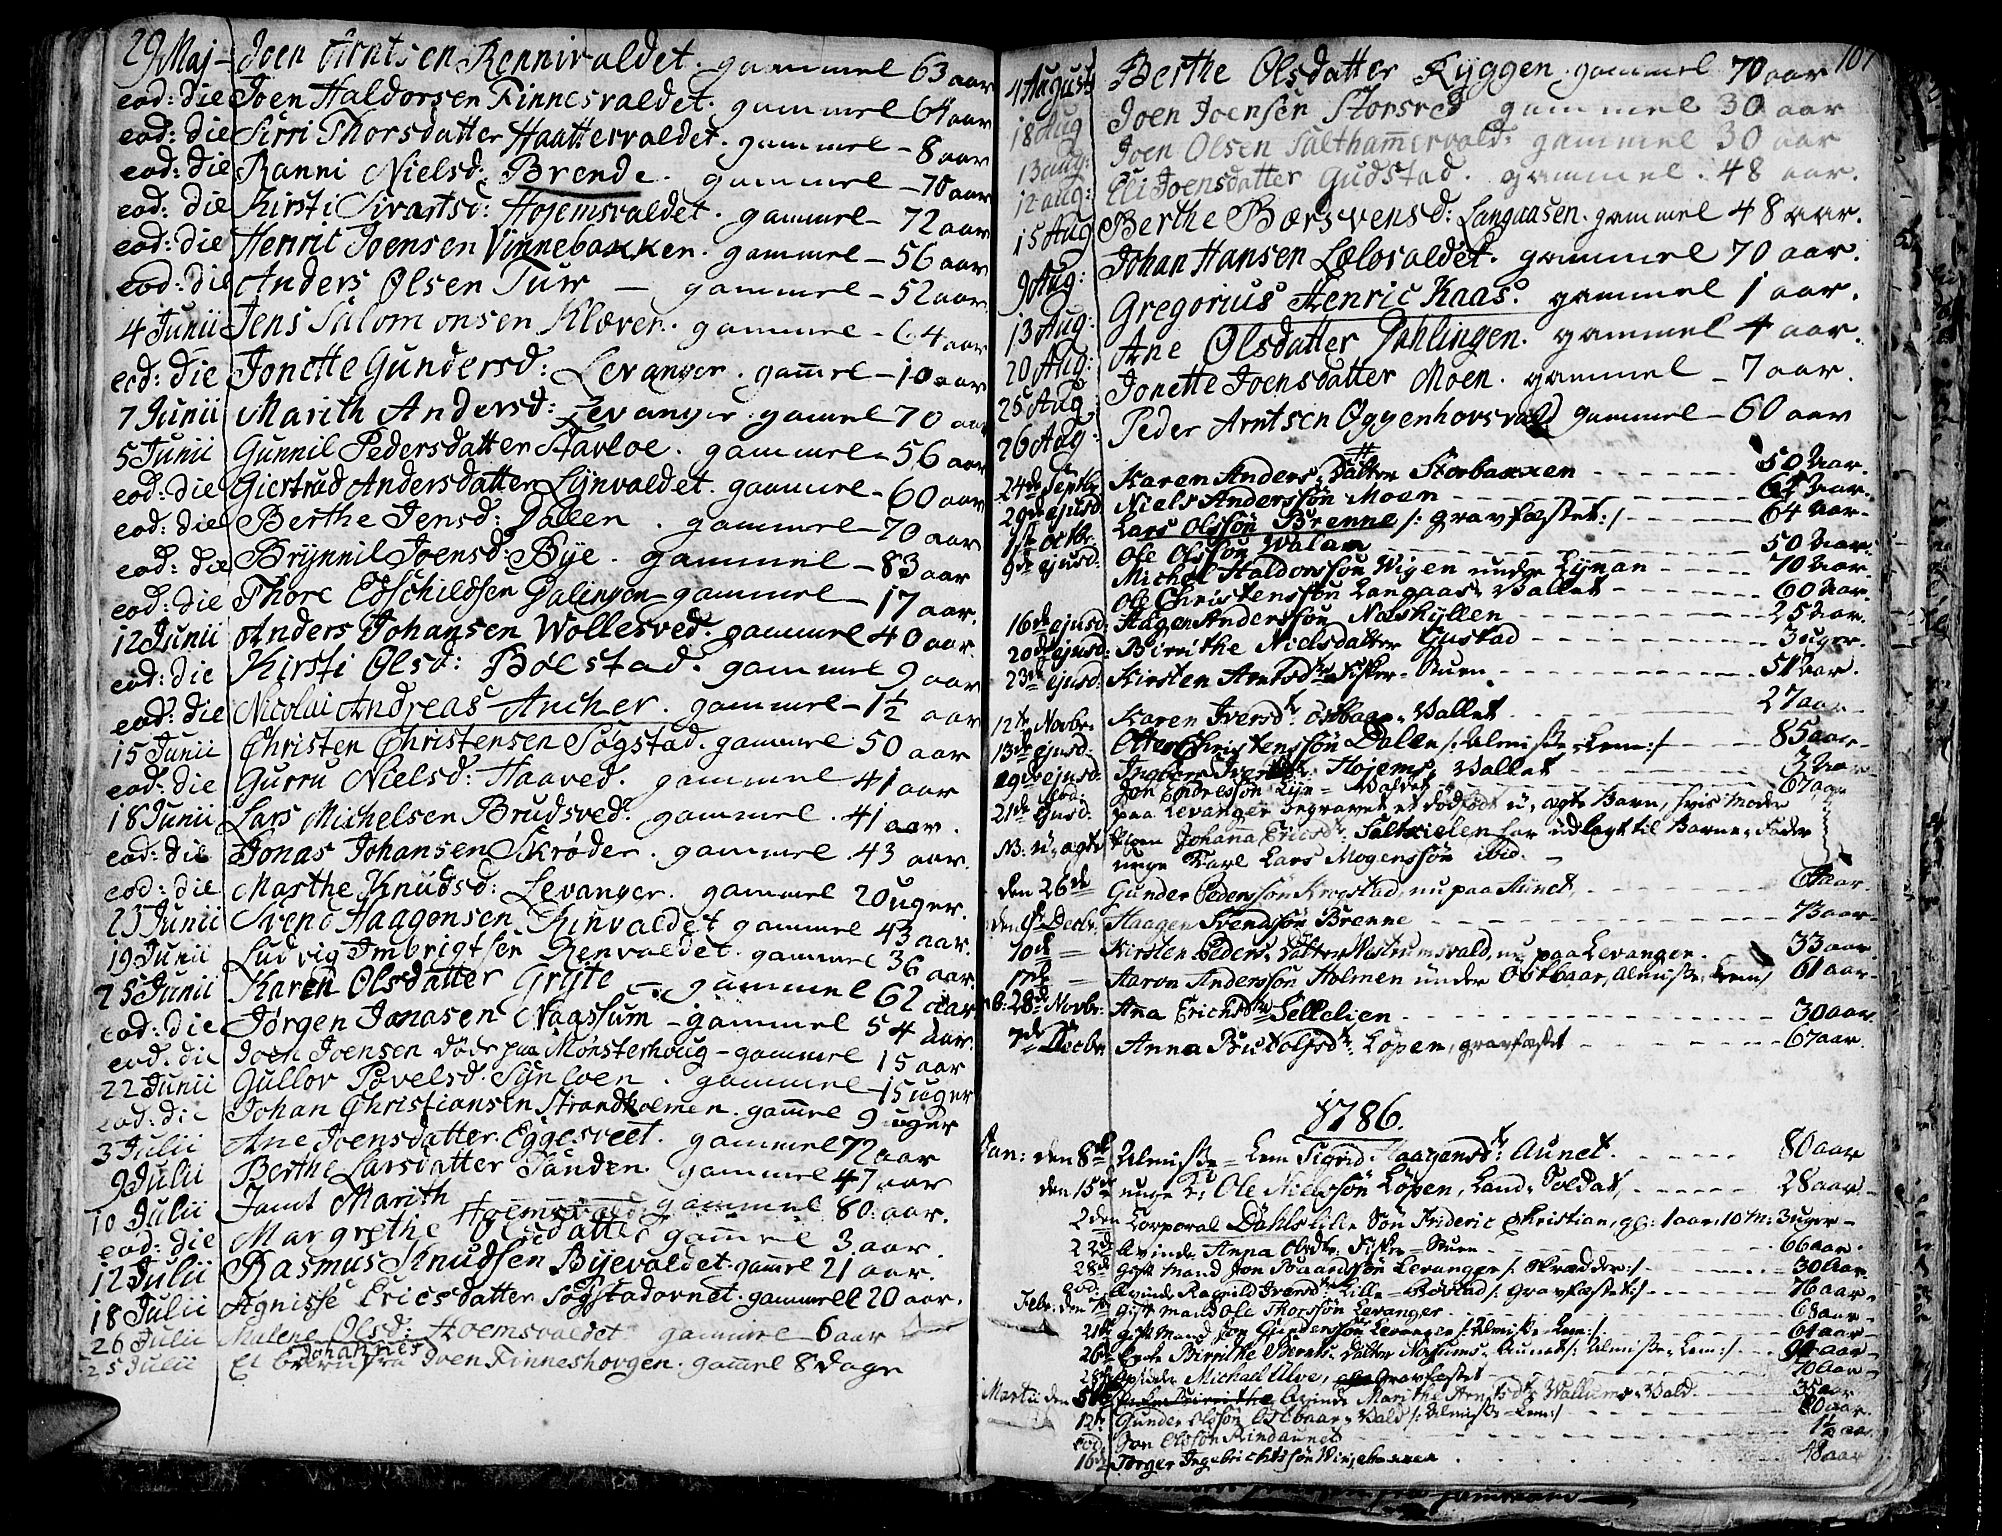 29 Maj Joen Arntsen Rennivaldet. gammel 63 aar
eod: die Joen Haldorsen Finnesvaldet. gammel 64 aar
eod: die Sirri Thorsdatter Haattervaldet. gammel - 8 aar
eod: die Ranni Nielsd: Brende. gammel - 70 aar
eod: die Kirsti Sivartsd: Højemsvaldet. gammel - 72 aar
eod: die Henric Joensen Vinnebakken. gammel - 56 aar
eod: die Anders Olsen Tuw - gammel - 52 aar
4 Junii Jens Salomonsen Kløver. gammel - 64 aar
eod: die Jonette Gundersd: Levanger. gam̅el - 10 aar
7 Junii Marith Andersd: Levanger. gam̅el 70 aar
5 Junii Gunnil Pedersdatter Stavloe. gammel - 56 aar
eod: die Giertrud Andersdatter Lynvaldet. gammel - 60 aar
eod: die Berthe Jensd: Dallen. gammel - 70 aar
eod: die Brynnil Joensd: Bye. gammel - 83 aar
eod: die Thore Edschildsen Dalingen gammel - 17 aar.
12 Junii Anders Johansen Wollesved. gammel 40 aar.
eod: die Kirsti Olsd: Bølstad. gammel 9 aar
eod: die Nicolai Andreas Ancher. gammel - 1½ aar
15 Junii Christen Christensen Søgstad. gammel 50 aar
eod: die Gurru Nielsd: Haaved. gammel 41 aar
18 Junii Lars Michelsen Brudsved. gammel. 41 aar.
eod: die Jonas Johansen Skrøder. gammel 43 aar.
eod: die Marthe Knudsd: Levanger. gammel 20 uger.
23 Junii Svend Haagonsen Rinvaldet gammel 43 aar.
19 Junii Ludvig Imbrigtsen Renvaldet. gammel 36 aar.
25 Junii Karen Olsdatter Gryte - gammel 62 aar
eod: die Jørgen Jonasen Naassum - gammel 54 aar.
eod: die Joen Joensen døde paa Mønsterhoug - gammel 15 aar
22 Junii Gullov Povelsd. Synloen. gammel 15 uger
eod: die Johan Christiansen Strandholmen. gam̅el 9 uger
3 Julii Ane Joensdatter Eggesveet. gammel 72 aar
9 Julii Berthe Larsdatter Sanden gammel 47 aar
10 Julii Jamt Marith Hoemsvald gammel 80. aar.
eod: die Margrethe Olsdatter gam̅el 3. aar.
12 Julii Rasmus Knudsen Byevaldet. gam̅el 21 aar.
18 Julii Agnisse Ericsdatter Søgstadornet. gammel 20 aar.
26 Julii Malene Olsd: Hoemsvaldet gammel 6 aar
Johannes
25 Julii Et barn fra Joen Finneshovgen. gam̅el 8 dage
107
4 August Berthe Olsdatter Ryggen. gammel 70 aar
18 Aug Joen Joensen Storsved gammel 30 aar
13 aug: Joen Olsen Salthammervald: gammel 30 aar
12 aug: Eli Joensdatter Gudstad. gammel. 48 aar.
15 Aug Berthe Børsvensd: Langaasen. gammel 48 aar.
9 Aug: Johan Hansen Lælosvaldet. gammel 70 aar.
13 Aug: Gregorius Henric Kaas. gammel 1 aar.
20 Aug: Ane Olsdatter Dahlingen. gammel 4 aar.
25 Aug: Jonette Joensdatter Moen. gammel - 7 aar.
26 Aug: Peder Arntsen Oggenhovsvald gammel - 60 aar
24de Septbr Karen Anders-datter Storbakken - - - 50 Aar.
29de ejusd Niels Anderssøn Moen - - -
1ste Octbr. Lars Olssøn Brenne /: gravfæstet:/ - - - 64 aar-
9de ejusd: Ole Olssøn Walan - - - 50 Aar.
Michel Haldorssøn Wigen - - - 70 Aar.
Ole Christenssøn Langaas-Vallet - - - 60 Aar.
16de ejusd: Hagen Anderssøn Næshyllen - - - 25 Aar.
20de ejusd: Birrithe Nielsdatter Gustad - - - 3 uger.
23de ejusd: Kirsten Arntsdtr Fisker-Stuen - - - 51 Aar.
12te Novbr. Karen Iversdtr. Østbaar-Vallet - - - 27 aar
13de ejusd: Christenssøn Dalen /: Almisse-Lem:/ - - - 85 aar
19de ejusd: Højems-Vallet - - -
Jon Endressøn - - - 67 aar
21de ejusd. paa Levanger begravet et dødfødt u-ægte Barn, hvis Moder
NB: u-ægte Johanna Ericsdtr. Saltvielen har udlagt til Barne-Fader
unge Karl Lars Mogenssøn ibid.
den 26de Gunder Pederssøn Krogstad, nu paa - - -
den 9de Decbr. Haagen Svendssøn Brenne - - - 73 aar-
10de = Kirsten Peders-datter, nu paa Levanger. 33 aar.
17de = Aaron Anderssøn Holmen under Østbaar, Almisse-Lem/ 61 aar-
28de Novbr: Ana Erichsdtr Sellelien - - - 30 aar.
7de Decbr Anna Løpen, gravfæstet - - - 67 aar.
1786.
Jan: den 8de Almisse-Lem Sigrid Haagensdtr: Aunet. - - - 80 aar
den 15de unge K: Ole Nielssøn Løpen, Land-Soldat, - - - 28 aar-
2den Corporal Dahls lille Søn Frideric Christian, gl: 1 aar, 10 M: 3 uger-
22de Qvinde Anna Olsdtr. Fisker-Stuen - - - 66 aar.
28de Gift Mand Jon Levanger /: Skrædder:/ - - - 30 Aar.
eod: Qvinde Ragnild Iversdtr Lille-Røvstad /: gravfæstet:/ - - - 76 aar.
Febr: den 7de gift Mand Ole Thorssøn Levanger. - - - 68 aar-
21de gift Mand Jon Gunderssøn Levanger /: Almisse-Lem:/ - - - 61 aar-
26de Enke Birrithe Bernts-datter Nossums-Aunet /: Almisse-Lem:/ - - -
28de Michael Ulve, gravfæstet - - - 70 Aar-
Martii den 5te Qvinde Marithe Arntsdtr Wallums-Vald. - - - 35 aar
12te Gunder Olssøn Østbaar-Vald /: Almisse-Lem:/ - - - 80 aar.
eod. Jon Olssøn Rindaunet - - - 1½ aar.
16de Torger Ingebrichtssøn - - - 48 aar